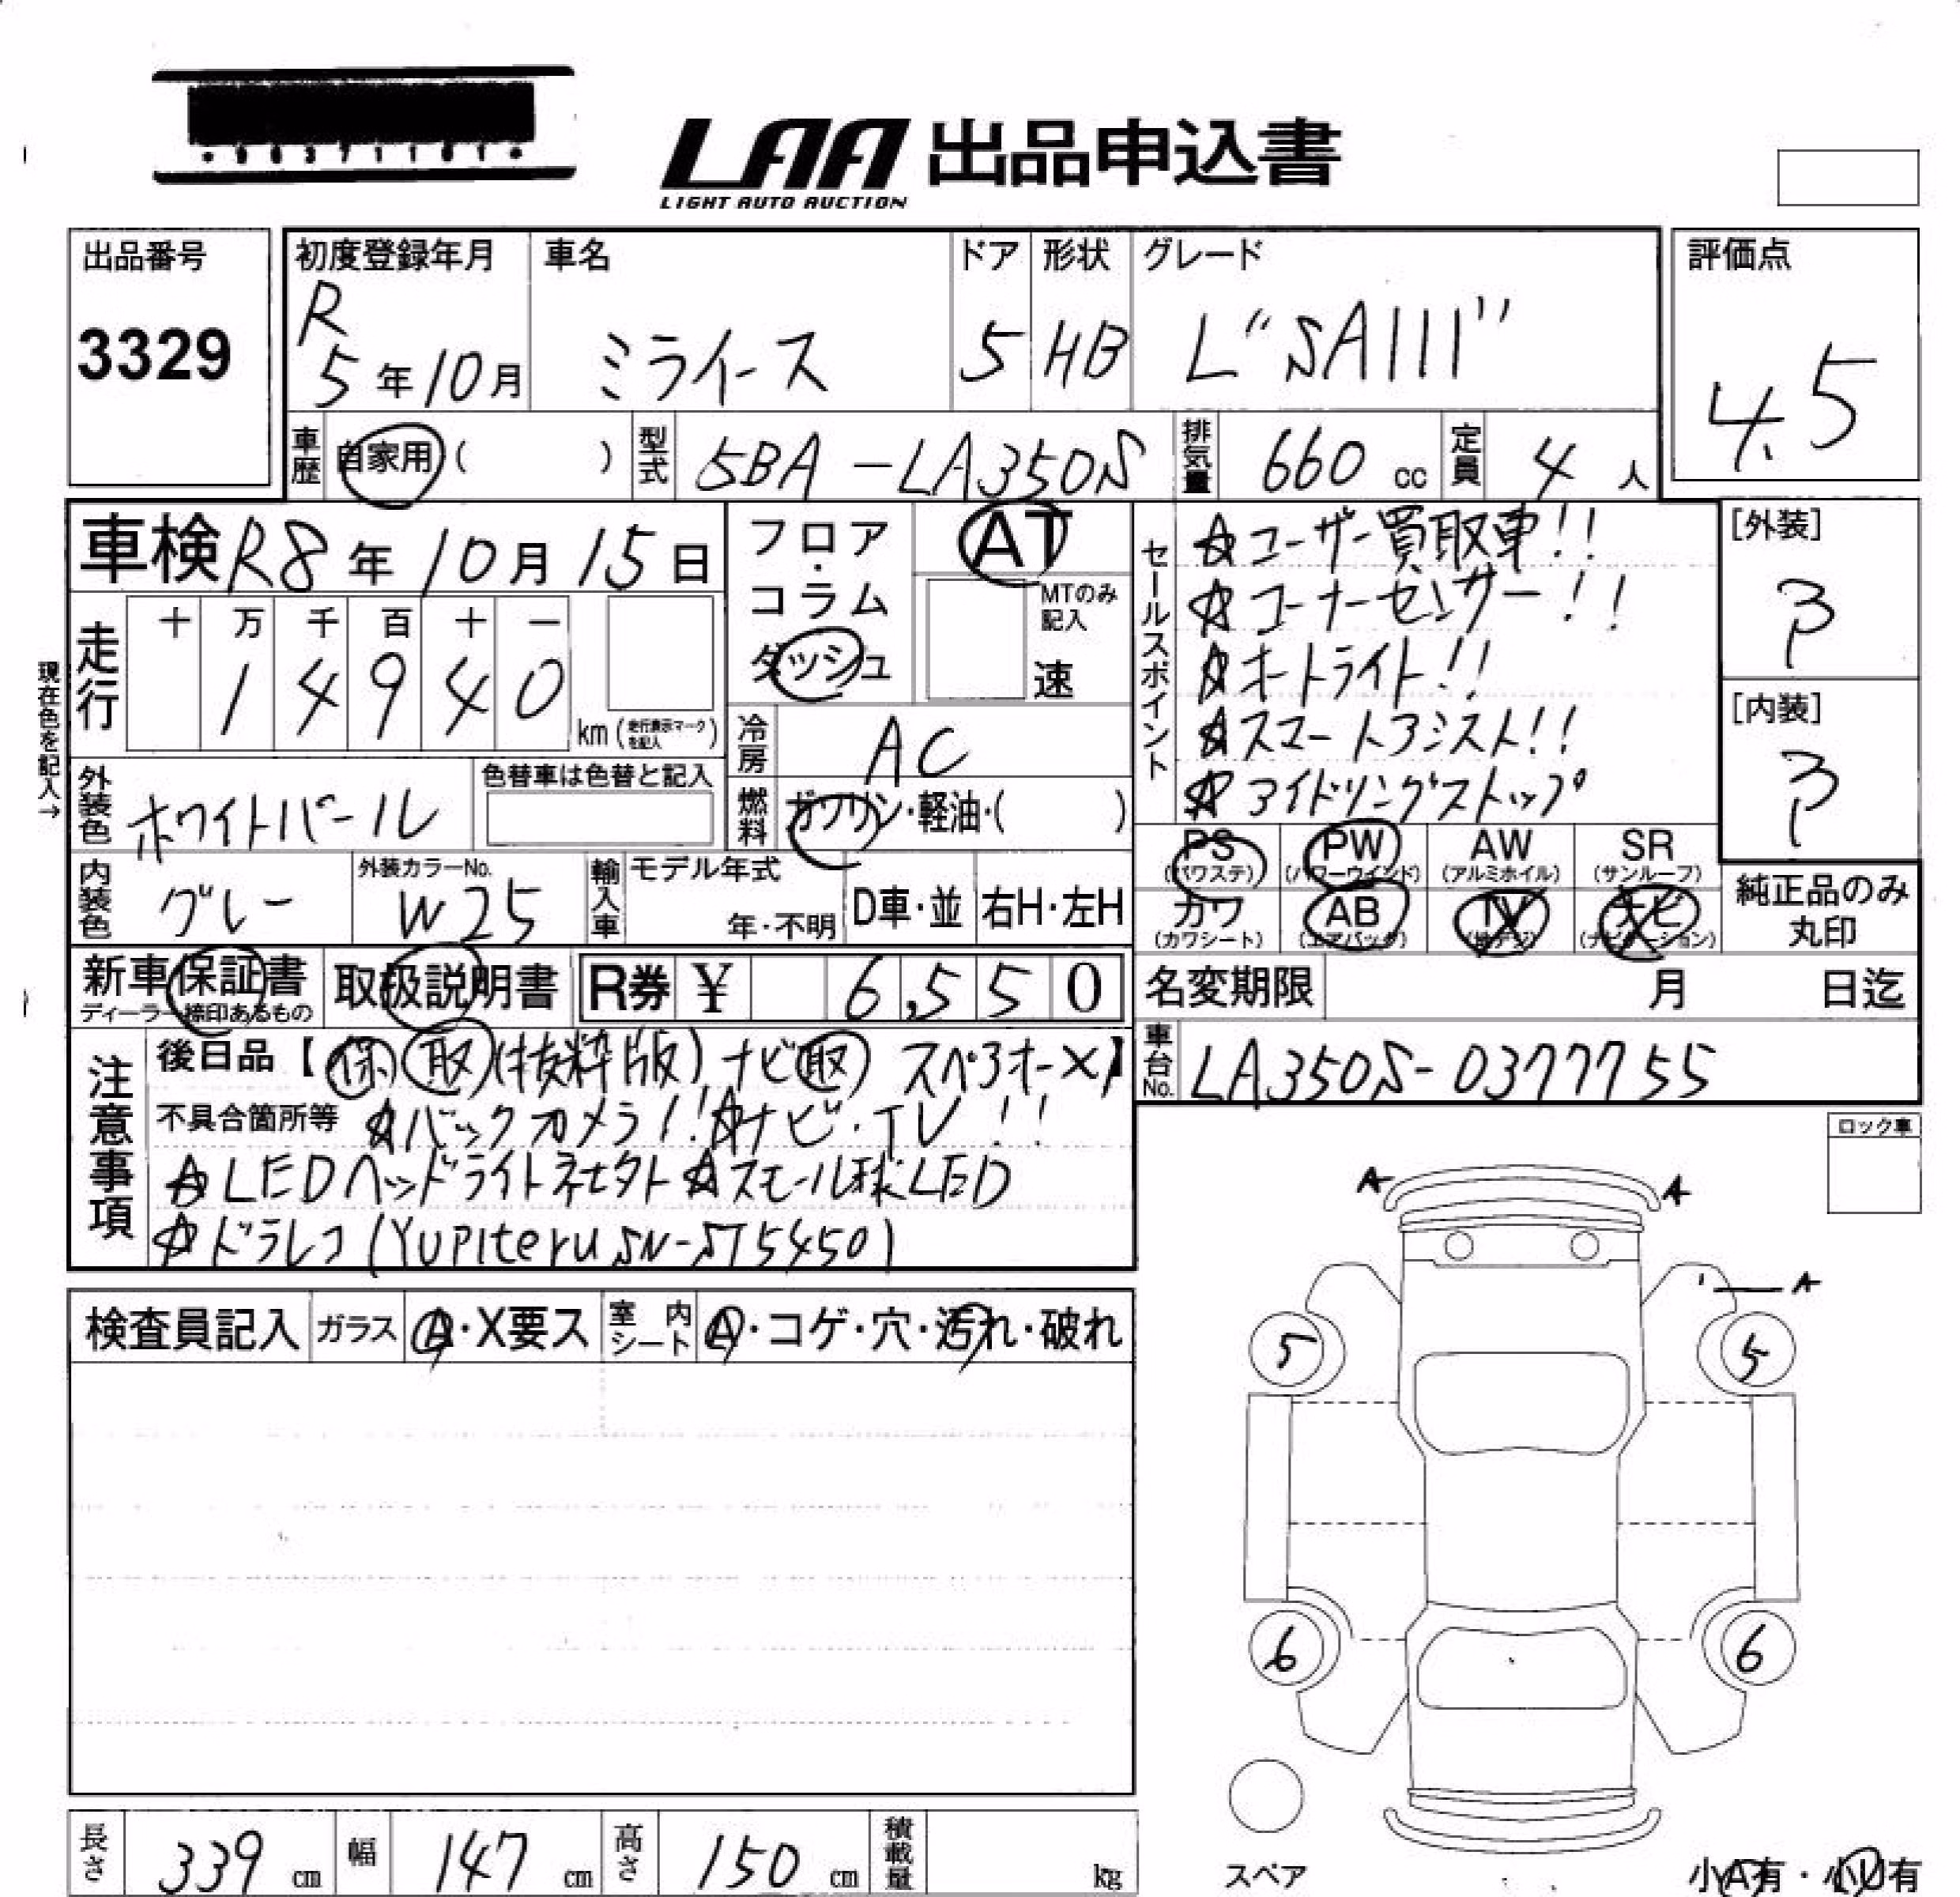 LAA 出品申込書
LIGHT AUTO AUCTION
出品番号
3329
初度登録年月
R
5年10月
車名
ミライース
ドア
5
形状
HB
グレード
L"SAIII"
評価点
4.5
車歴
自家用( )
型式
5BA-LA350S
排気量
660 cc
定員
4 人
車検 R8年10月15日
フロア・コラム
ダッシュ
AT
MTのみ記入
速
走行
十 万 千 百 十 一
1 4 9 4 0
km(走行表示マークを記入)
現在色を記入→
冷房
AC
燃料
ガソリン・軽油・( )
外装色
ホワイトパール
色替車は色替と記入
内装色
グレー
外装カラーNo.
W25
輸入車
モデル年式
年・不明
D車・並
右H・左H
セールスポイント
☆ユーザー買取車!!
☆コーナーセンサー!!
☆オートライト!!
☆スマートアシスト!!
☆アイドリングストップ
[外装]
[内装]
PS
(パワステ)
PW
(パワーウインド)
AW
(アルミホイル)
SR
(サンルーフ)
カワ
(カワシート)
AB
(エアバック)
TV
(地デジ)
ナビ
(ナビゲーション)
純正品のみ
丸印
新車保証書
ディーラー捺印あるもの
取扱説明書
R券 ¥ 6,550
名変期限
月 日迄
注意事項
後日品【保 取(抜粋版) ナビ取 スペアキー×1】
不具合箇所等 ☆バックカメラ!!☆ナビ・TV!!
☆LEDヘッドライト ☆スモール球LED
☆ドラレコ(Yupiteru SN-ST5450)
車台No.
LA350S-0377755
ロック車
検査員記入
ガラス
A・X要ス
室内シート
A・コゲ・穴・汚れ・破れ
A
A
A
5
5
6
6
スペア
小A有・小U有
長さ
339 cm
幅
147 cm
高さ
150 cm
積載量
kg